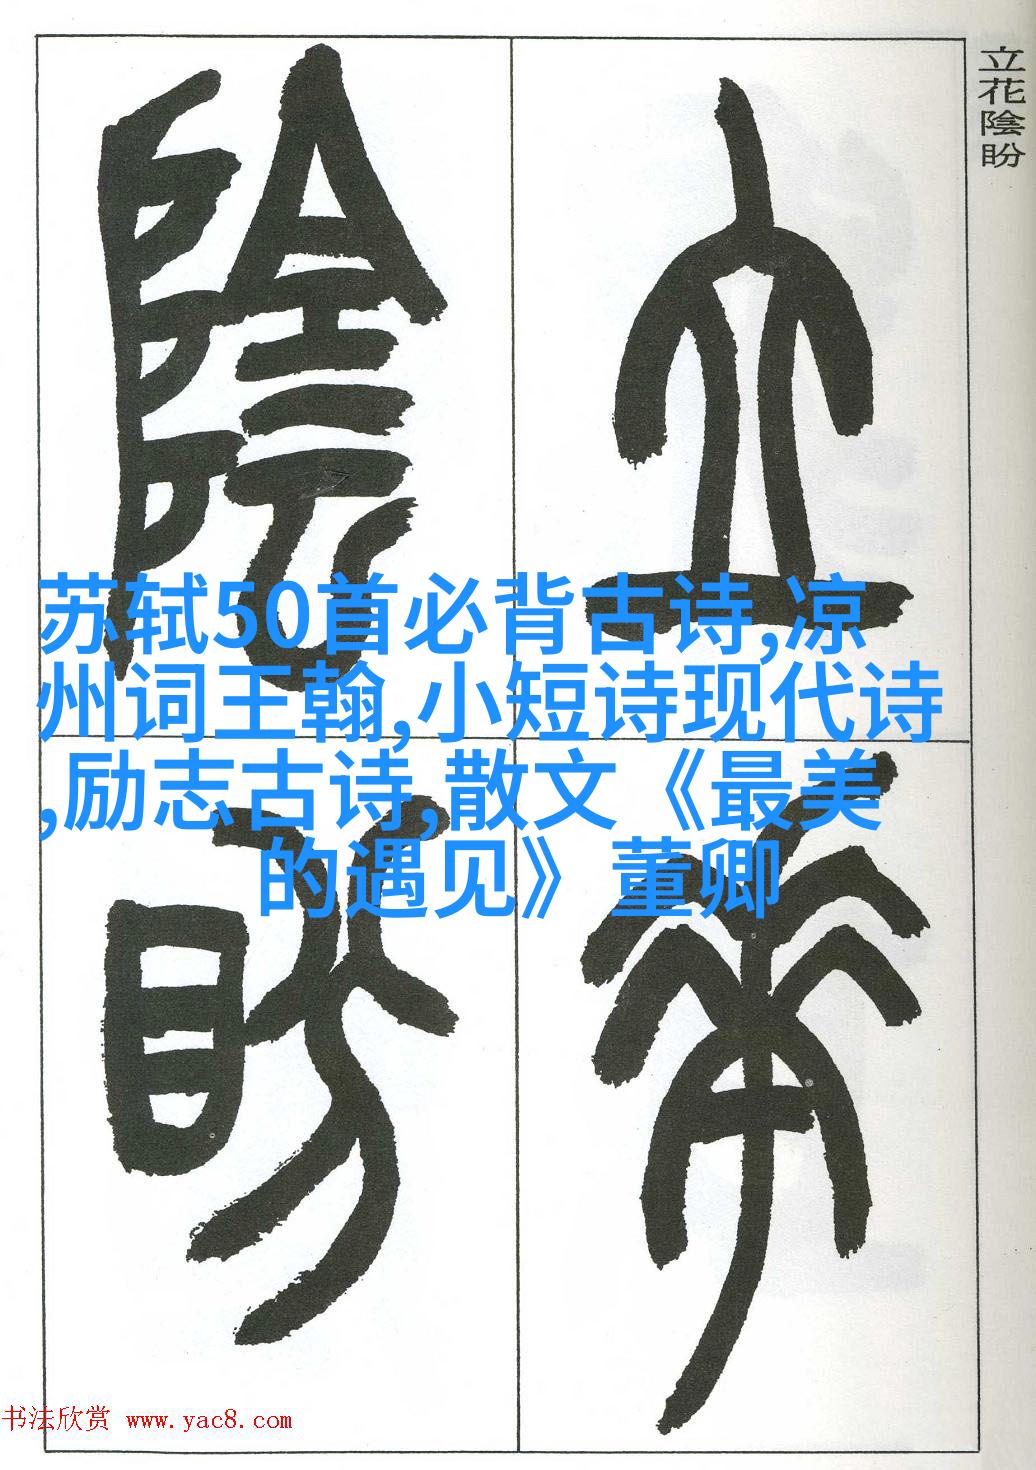 立花陰盼
立花
陰盼
苏轼50首必背古诗,凉
州词王翰,小短诗现代诗
,励志古诗,散文《最美
的遇见》董卿
书法欣赏 www.yac8.com